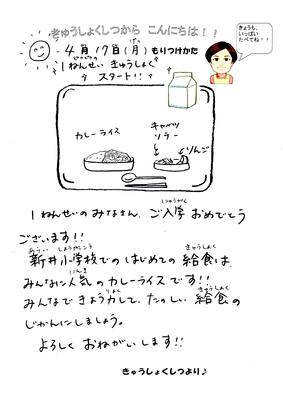 きゅうしょくしつから こんにちは！！
4月17日(月) もりつけかた
1ねんせい きゅうしょく
スタート!!
きょうも、
いっぱい
たべてね！！
カレーライス
キャベツ
ソテー
りんご
1ねんせいのみなさん、ご入学 おめでとう
ございます!!
新井小学校での はじめての 給食は、
みんなに人気の カレーライスです!!
みんなで きょう力して、たのしい 給食の
じかんにしましょう。
よろしく おねがいします!!
きゅうしょくしつより♪